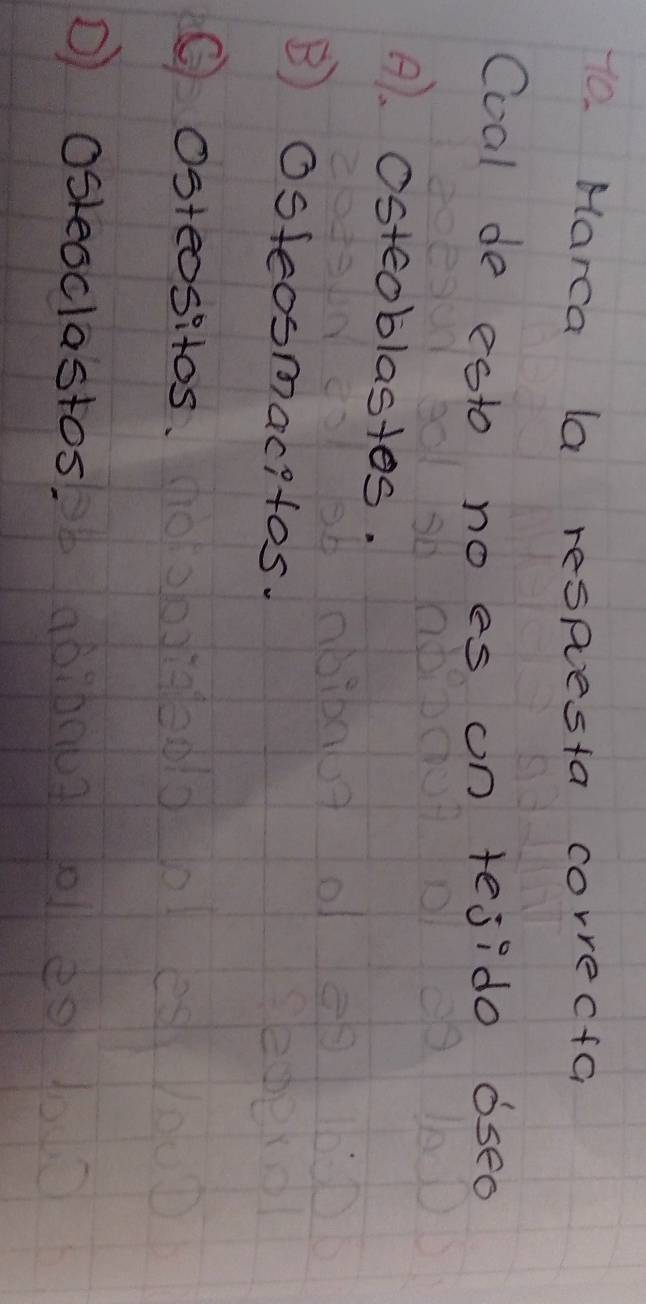 10. Marca la respuesta correcta
Cual de esto no es un tejido óseo
A). Osteoblastos.
B) Osteosmacitos.
C) Osteositos.
D) Osteoclastos.